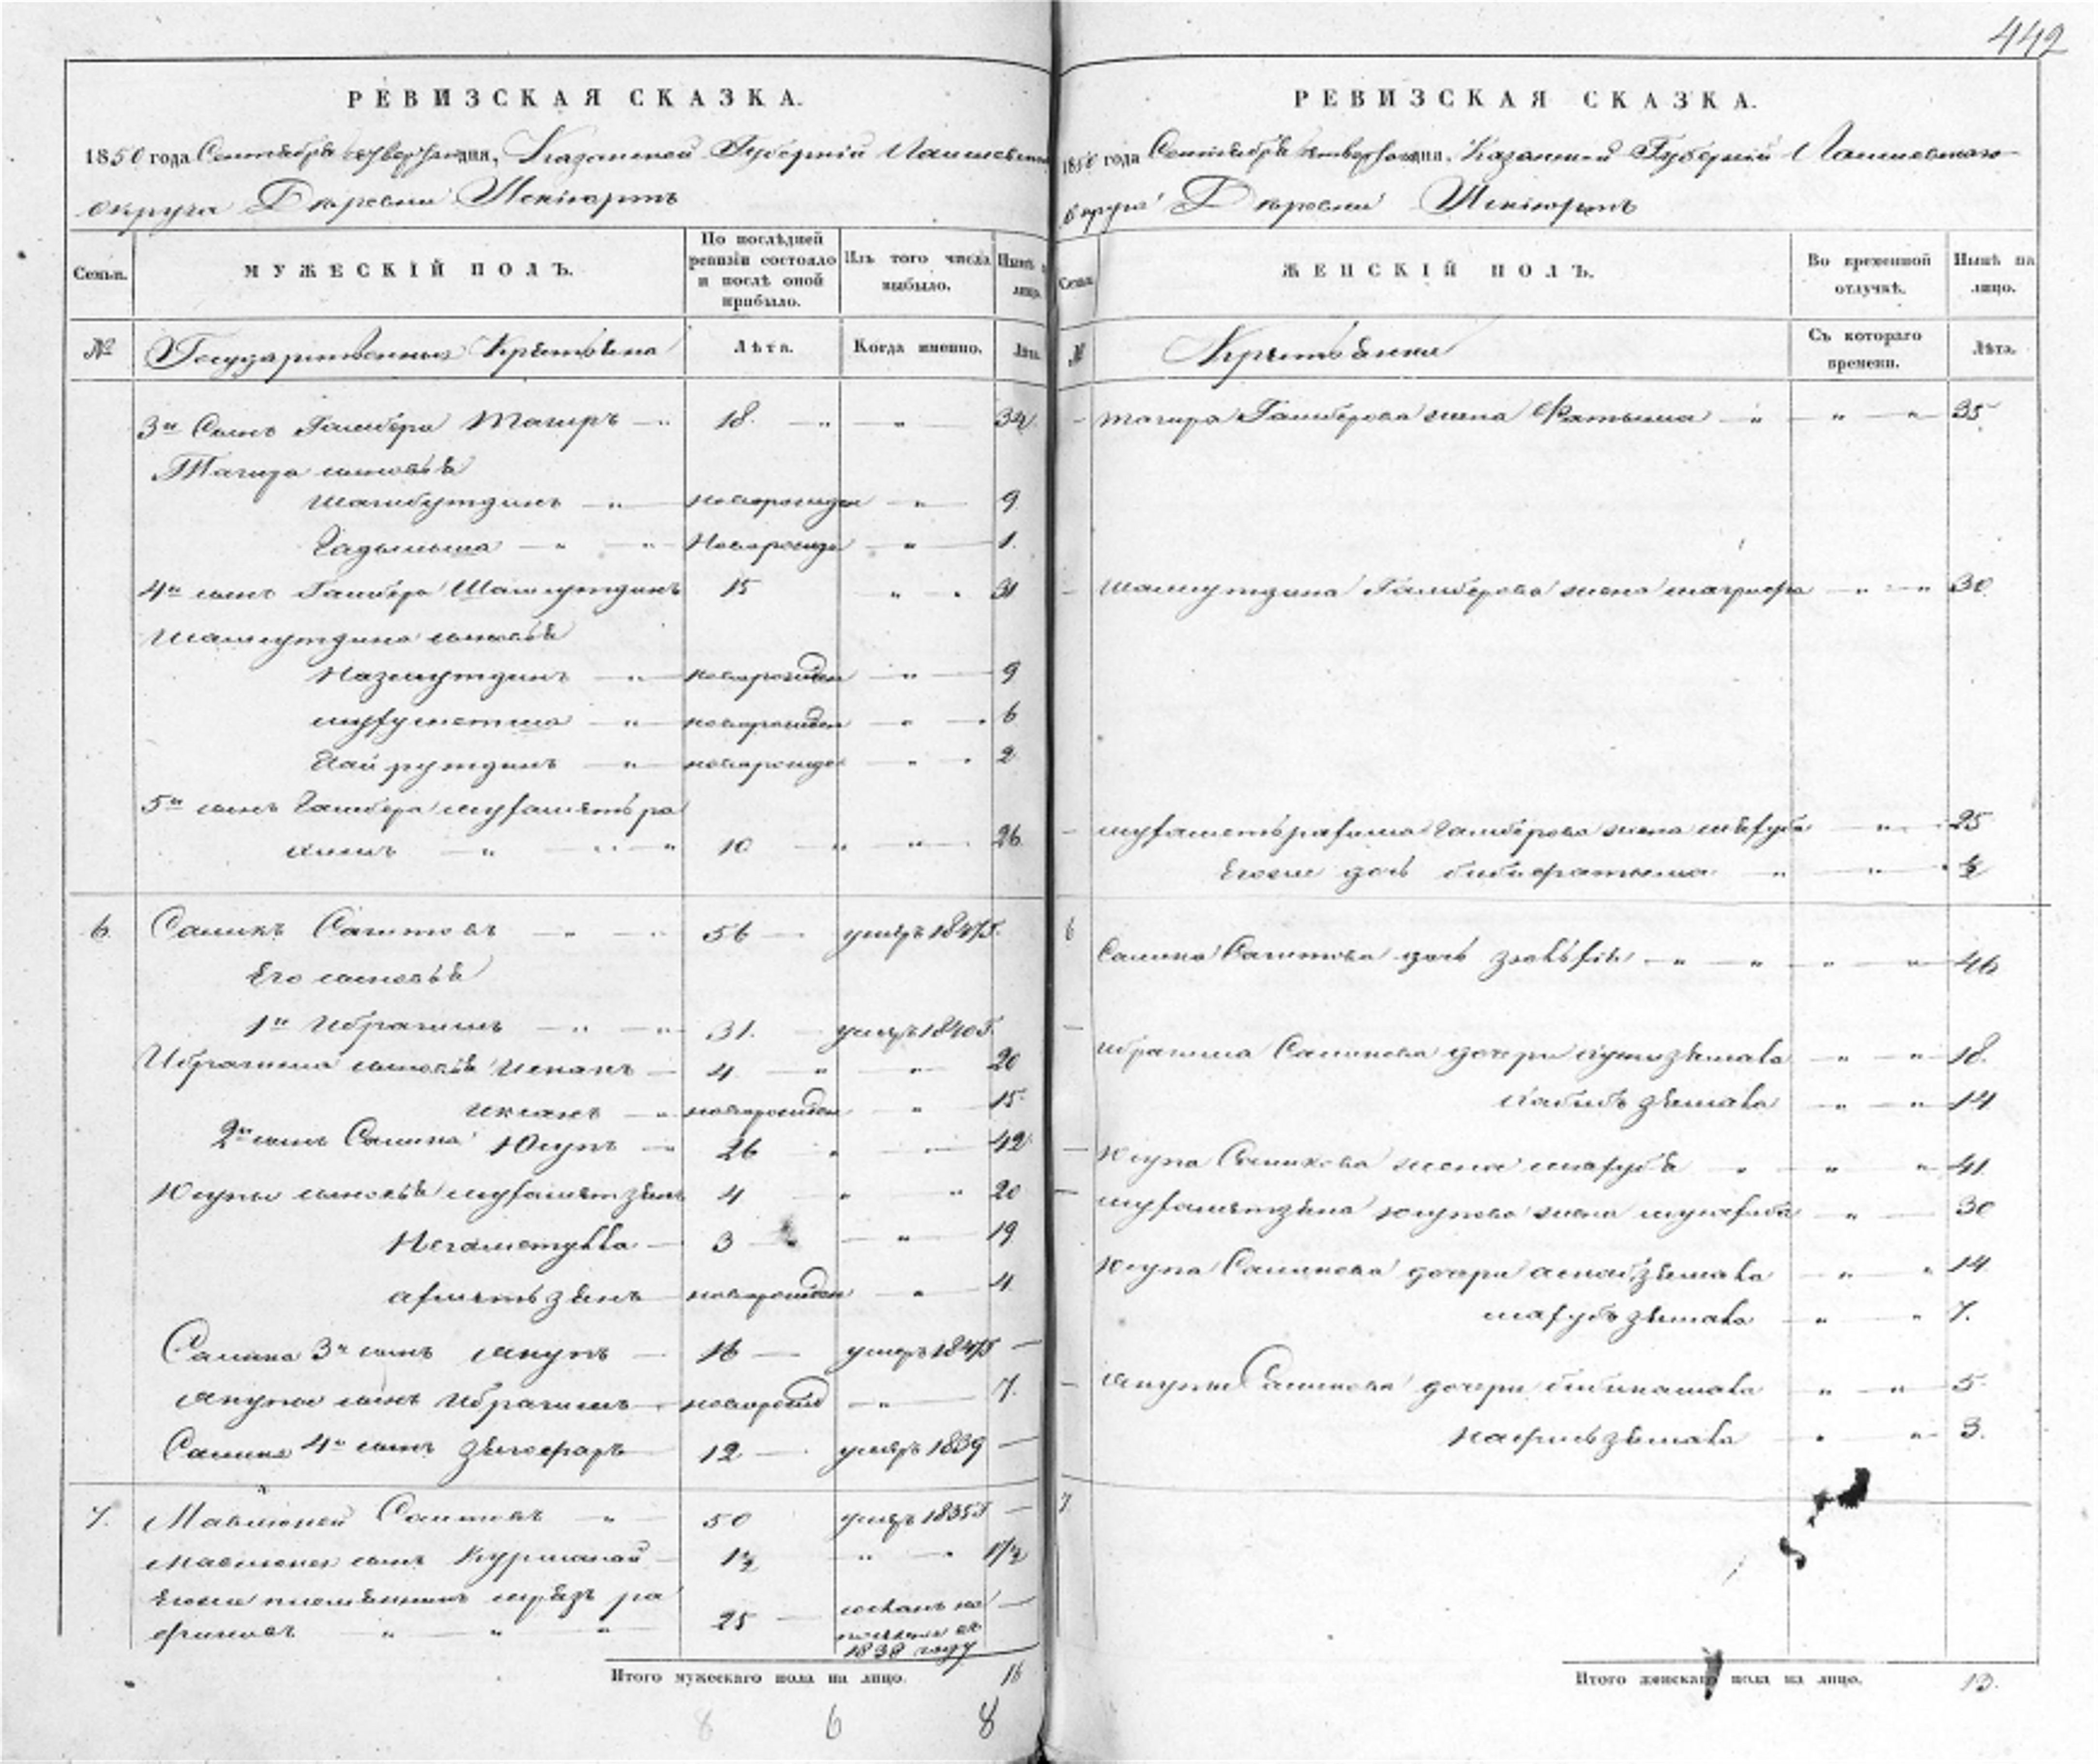 442
РЕВИЗСКАЯ СКАЗКА.
1850 года Сентября четвертаго дня, Казанской Губерніи Лаишевскаго
округа Деревни
Семьи. МУЖЕСКІЙ ПОЛЪ. По послѣдней ревизіи состояло и послѣ оной прибыло. Изъ того числа выбыло. Нынѣ на лицо.
№ Государственные Крестьяна Лѣта. Когда именно. Лѣта.
3й Сынъ Гамбера Тагиръ — " 18. — " — " — 34.
Тагира сыновья
— " — новорожден — " — 9
— " — " Новорожде — " — 1.
4й сынъ Гамбера Шамсутдинъ 15 " — " 31
Шамсутдина сыновья
Назмутдинъ — " — новорожден — " — 9
— " — новорожден — " — 6
Хайрутдинъ — " — новорожде — " — 2
5й сынъ Гамбера Мухаметьра
химъ — " — " — " 10 — " — " — 26.
6. Саликъ Саитовъ — " — " 56 — умеръ 1847г.
Его сыновья
1й Ибрагимъ — " — " 31. — умеръ 1840г.
Ибрагима сыновья Исхакъ — 4 — " — " — 20
— " новорожден — " — 15
2й сынъ Салика Юсупъ — " 26 — " — " — 42
Юсупа сыновья Мухаметзянъ 4 — " — " 20
Негаметулла — 3 — " — " — 19
Ахметьзянъ — новорожден — " — 4.
Салика 3й сынъ Якупъ — 16 — умеръ 1847г —
Якупа сынъ Ибрагимъ — новорожд — " — 7.
Салика 4й сынъ — 12 — умеръ 1839 —
7. Мавлюкей Саитовъ — " — 50 умеръ 1835г —
Мавлюкея сынъ Курманай — 1½ " — " 17½
Егоже племянникъ
25 — сосланъ на поселеніе въ 1838 году —
Итого мужескаго пола на лицо. 16
8 6 8
РЕВИЗСКАЯ СКАЗКА.
1850 года Сентября четвертаго дня, Казанской Губерніи Лаишевскаго
округа Деревни
Семьи. ЖЕНСКІЙ ПОЛЪ. Во временной отлучкѣ. Нынѣ на лицо.
№ Крестьянки Съ котораго времени. Лѣта.
— Тагира Гамберова жена Фатыма — " — " — " 35
— Шамсутдина Гамберова жена — " — " 30.
— Мухаметьрахима Гамберова жена — " — 25
Егоже дочь Бибифатыма — " — " — ½
6 Салика Саитова дочь — " — " — " — " 46
— Ибрагима Саликова дочери — " — " 18.
Хабибъзямала — " — " 14
— Юсупа Саликова жена — " — " — " 41.
— Мухаметзяна Юсупова жена — " — 30
Юсупа Саликова дочери — " — " 14
— " — " 7.
— Якупа Саликова дочери Бибикамала — " — " 5.
— " — " 3.
7
Итого женскаго пола на лицо. 13.